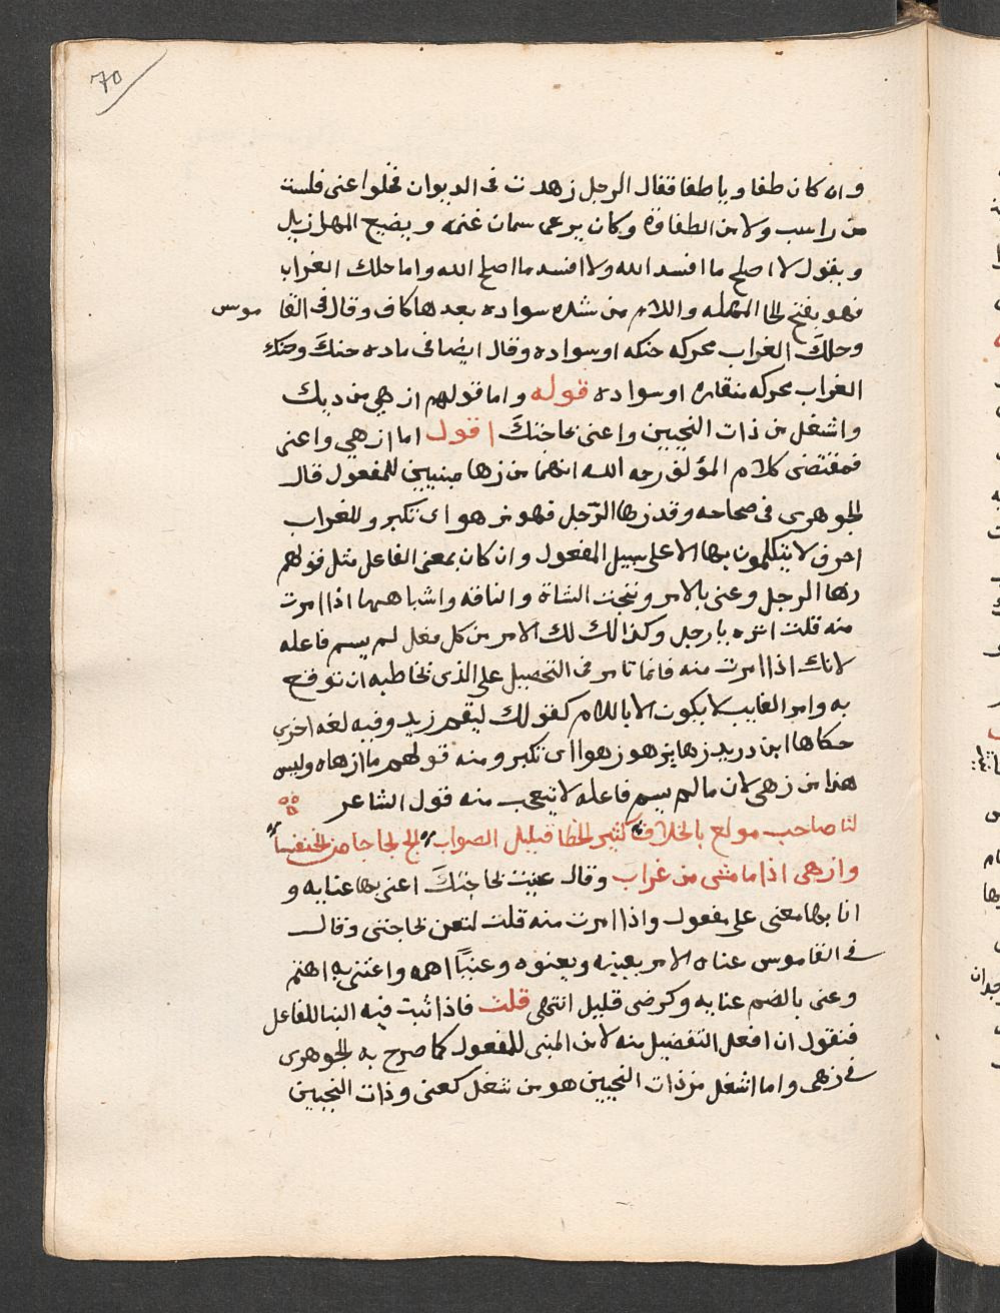 70
وان كان طفا وياطفا فقال الرجل زهدت فى الديوان فخلوا عنى فلست
من راسب ولا من الطفاوة وكان يرعى سمان غنمه ويضيع المهازيل
ويقول لا اصلح ما افسد الله ولا افسد ما اصلح الله واما حلك الغراب
فهو بفتح الحا المهمله واللام من شده سواده بعدها كاف وقال فى القا موس
وحلكَ الغراب محركه حنكه او سواده وقال ايضا فى ماده حنكَ وحنك
الغراب محركه منقاره او سواده قوله واما قولهم ازهي من ديك
واشغل من ذات النحيين واعنى بحاجتكَ اقول اما ازهي واعنى
فمقتضى كلام المؤلف رحمه الله انهما من زها مبنيين للمفعول قال
الجوهرى فى صحاحه وقد زها الرّجل فهو مزهو اى تكبر وللعراب
احرف لا يتكلمون بها الا على سبيل المفعول وان كان بمعنى الفاعل مثل قولهم
زها الرجل وعنى بالامر ونتجت الشاة والناقه واشباهها اذا امرت
منه قلت لتزه يا رجل وكذا لك لك الامر من كل فعل لم يسم فاعله
لانك اذا امرت منه فانما تامر فى التحصيل على الذى تخاطبه ان توقع
به وامر الغايب لا يكون الا باللام كقولك ليقم زيد وفيه لغه اخري
حكاها ابن دريد زها يزهو زهوا اى تكبر ومنه قولهم ما ازهاه وليس
هذا من زهى لان ما لم يسم فاعله لا يتعجب منه قول الشاعر
لنا صاحب مولع بالخلاف كثير الخطا قليل الصواب الج لجاجا من الخنفسا
وازهى اذا ما مشى من غراب وقال عنيت بحاجتكَ اعنى بها عنايه و
انا بها معنى على مفعول واذا امرت منه قلت لتعن بحاجتى وقال
فى القاموس عناه الامر يعينه ويعنوه وعنيًا اهمه واعتنى به اهتم
وعنى بالضم عنايه وكرضى قليل انتهى قلت فاذا ثبت فيه البنا للفاعل
فنقول ان افعل التفضيل منه لا من المبنى للمفعول كما صرح به الجوهرى
فى زهى واما اشغل من ذات النحيين هو من شغل كعنى وذات النحيين